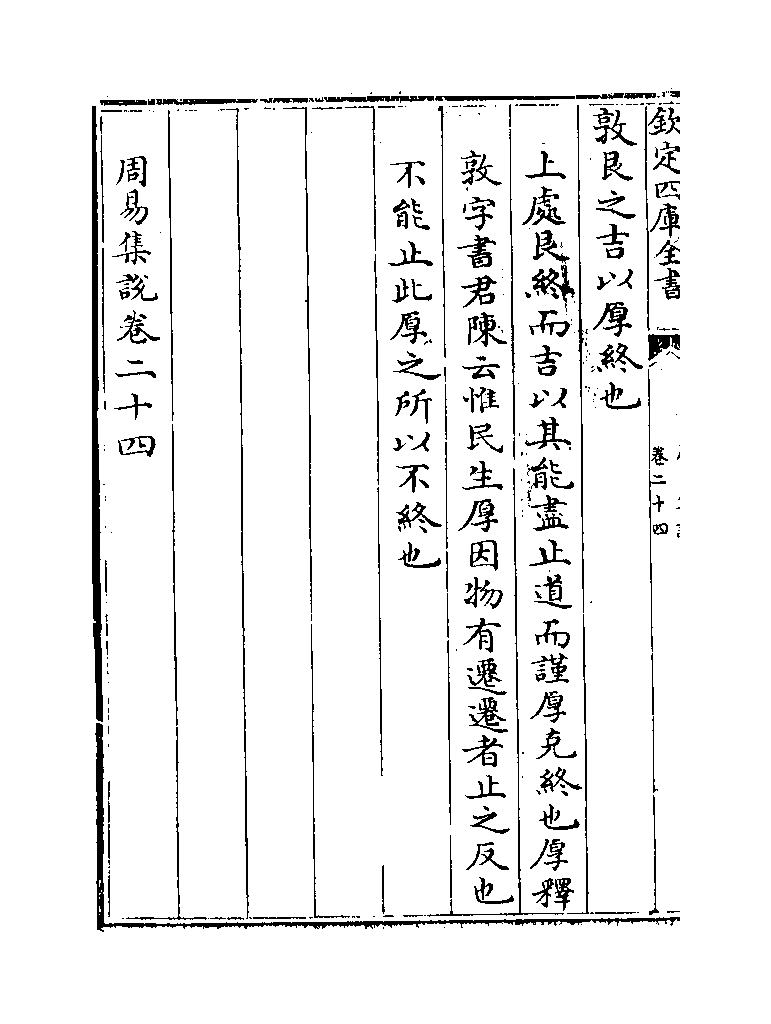 欽定四庫全書
卷二十四
敦艮之吉以厚終也
上處艮終而吉以其能盡止道而謹厚克終也厚釋
敦字書君陳云惟民生厚因物有遷遷者止之反也
不能止此厚之所以不終也
周易集說卷二十四